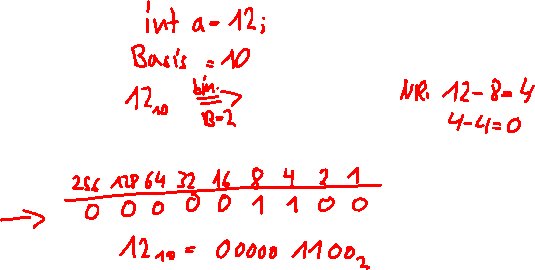 int a = 12;
Basis = 10
12₁₀ bin. B=2
NR: 12 - 8 = 4
4 - 4 = 0
256 128 64 32 16 8 4 2 1
0 0 0 0 0 1 1 0 0
12₁₀ = 00000 1100₂